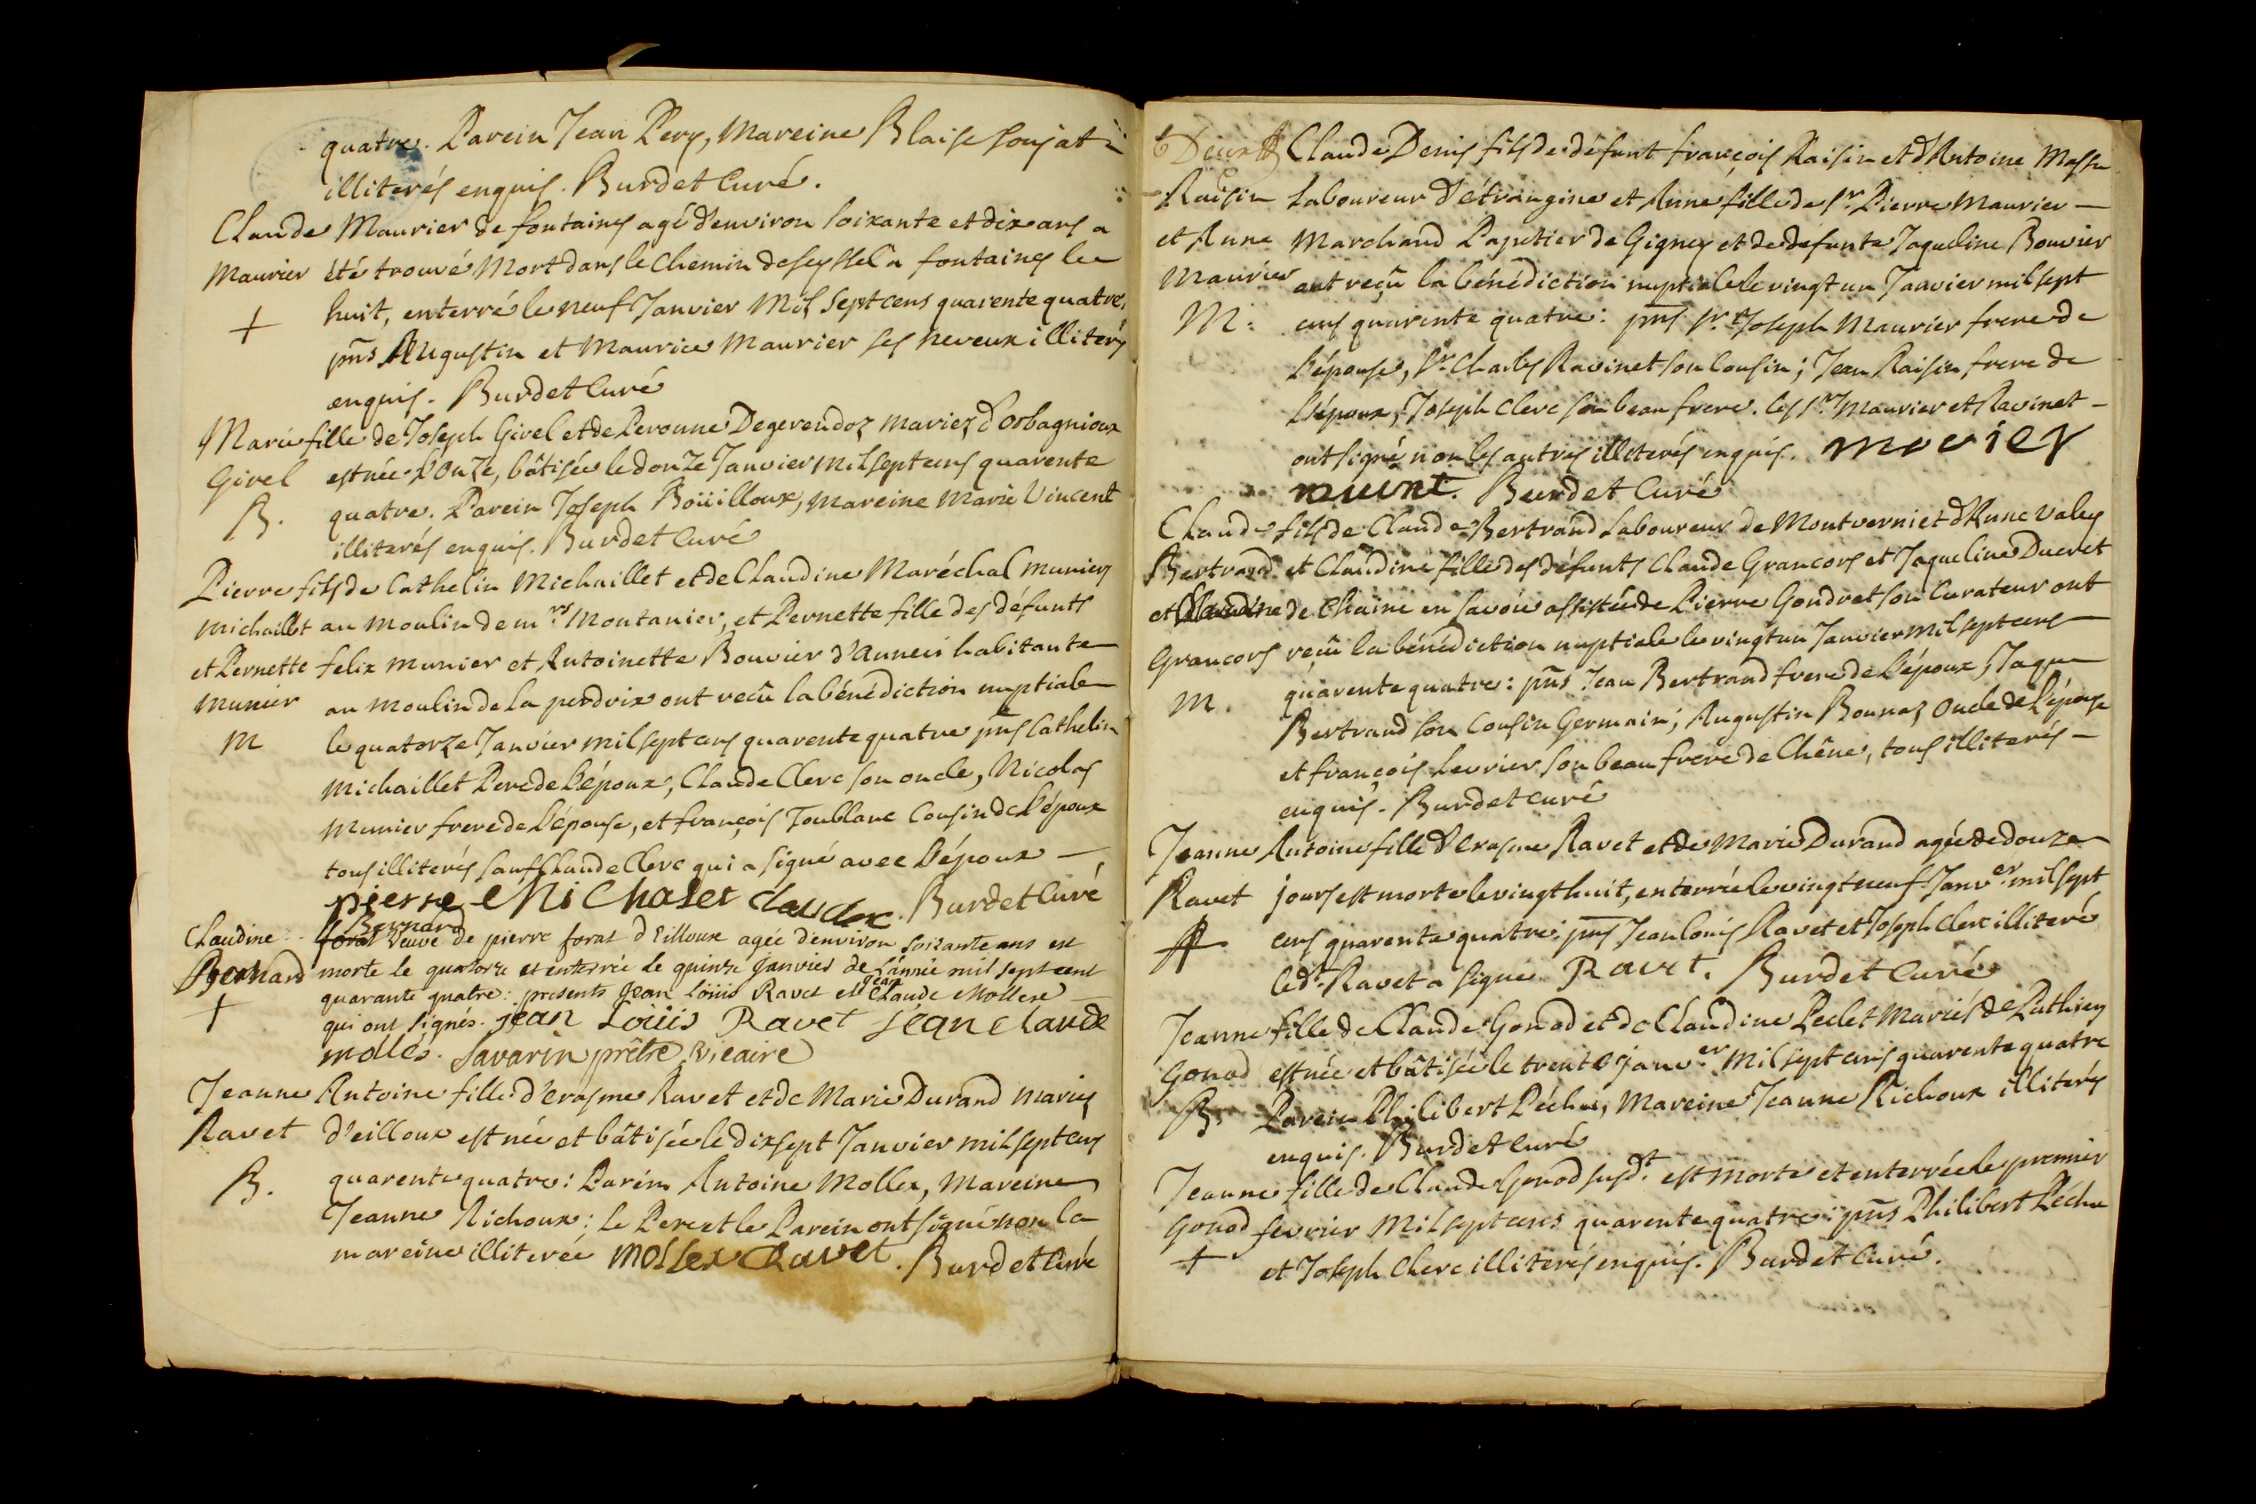 quatre. Parein Jean Pery, Mareine Blaise soujat
illiterés enquis. Burdet Curé.
Claude Maurier de fontaines agé d'environ soixante et dix ans a
Maurier été trouvé Mort dans le Chemin de seyssel a fontaines le
+ huit, enterré le neuf Janvier Mil sept cens quarente quatre,
pns Augustin et Maurice Maurier ses neveux illiterés
enquis. Burdet Curé
Marie fille de Joseph Givel et de Peronne Degerendoz mariez d'orbagnioux
Givel est née l'onze, bâtisée le douze Janvier mil sept cens quarente
B. quatre. Parein Joseph Boüilloux, mareine Marie Vincent
illiterés enquis. Burdet Curé
Pierre fils de Cathelin Michaillet et de Claudine Maréchal munier
Michaillet au moulin de mrs Montanier, et Pernette fille des défunts
et Pernette felix munier et Antoinette Bouvier d'anneci habitante
Munier au moulin de la perdrix ont reçû la bénédiction nuptiale
M le quatorze Janvier mil sept cens quarente quatre pns Cathelin
Michaillet Pere de l'époux, Claude Clerc son oncle, Nicolas
Munier frere de l'épouse, et françois Toublanc Cousin de l'époux
tous illiterés sauf Claude Clerc qui a signé avec l'époux
pierre Michalet claude clerc. Burdet Curé
Bernard
Claudine forat veuve de pierre forat d'Eilloux agée d'environ soixante ans est
Bernard morte le quatorze et enterrée le quinze janvier de l'année mil sept cent
+ quarante quatre: presents Jean Loüis Ravet et Jean Claude Mollere
qui ont signés. jean Loüis Ravet jean claude
mollés. Savarin prêtre vicaire
Jeanne Antoine fille d'Erasme Ravet et de Marie Durand mariez
Ravet d'eilloux est née et bâtisée le dixsept Janvier mil sept cens
B. quarente quatre: Parein Antoine Mollex, Mareine
Jeanne Richoux; le Pere et le Parein ont signé non la
mareine illiterée mollex Ravet. Burdet Curé
Claude Denis fils de défunt françois Raisin et d'Antoine Masse
Raisin Laboureur d'étrangine et Anne fille de sr. Pierre Maurier
et Anne Marchand Papetier de Gigney et de defunte Jaqueline Bouvier
Maurier ont reçû la bénédiction nuptiale le vingt un Janvier mil sept
M: cens quarente quatre: pns sr. Joseph Maurier frere de
l'épouse, sr. Charles Ravinet son Cousin; Jean Raisin frere de
l'époux, Joseph Clerc son beau frere. les srs. Maurier et Ravinet
ont signé non les autres illiterés enquis. movier
Burdet Curé
Claude fils de Claude Bertrand Laboureur de Montverni et d'Anne Valey
Bertrand et Claudine fille des défunts Claude Grancors et Jaqueline Ducret
et Claudine de Chaine en Savoie assistée de Pierre Gondret son Curateur ont
Grancors reçû la bénédiction nuptiale le vingt un Janvier mil sept cens
M. quarente quatre: pns Jean Bertrand frere de l'époux, Jaque
Bertrand son Cousin Germain, Augustin Bonnaz Oncle de l'épouse
et françois Levrier son beau frere de Chêne, tous illiterés
enquis. Burdet Curé
Jeanne Antoine fille d'Erasme Ravet et de Marie Durand agée de douze
Ravet jours est morte le vingt huit, enterrée le vingt neuf Janver mil sept
cens quarente quatre: pns Jean louis Ravet et Joseph Clerc illiteré
ledt. Ravet a signé Ravet. Burdet Curé
Jeanne fille de Claude Gonod et de Claudine Peclet Mariés de Puthiey
Gonod est née et bâtisée le trente Janver. Mil sept cens quarente quatre
B. Parein Philibert Péchu, Mareine Jeanne Richoux illiterés
enquis. Burdet Curé
Jeanne fille de Claude Gonod susdt. est morte et enterrée le premier
Gonod fevrier Mil sept cens quarente quatre: pns Philibert Péchu
+ et Joseph Clerc illiterés enquis. Burdet Curé.